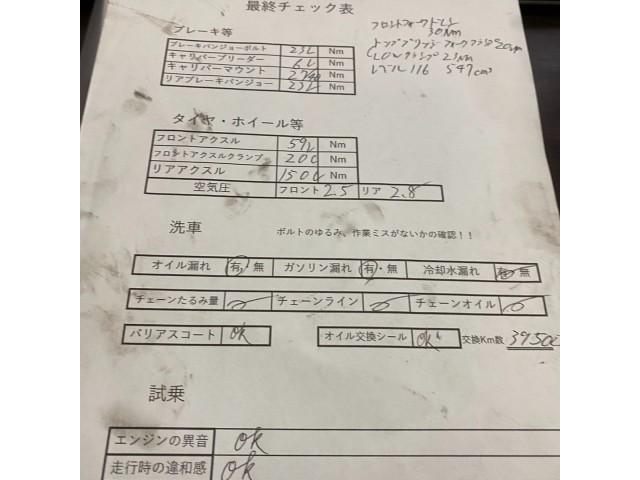 最終チェック表
フロントフォークドレン
30Nm
トップブリッジフォーククランプ20Nm
LOWクランプ 21Nm
レベル116 547cm³
ブレーキ等
ブレーキバンジョーボルト Nm
キャリパーブリーダー Nm
キャリパーマウント Nm
リアブレーキバンジョー Nm
タイヤ・ホイール等
フロントアクスル Nm
フロントアクスルクランプ Nm
リアアクスル Nm
空気圧 フロント 2.5 リア 2.8
洗車 ボルトのゆるみ、作業ミスがないかの確認！！
オイル漏れ 有・無 ガソリン漏れ 有・無 冷却水漏れ 有・無
チェーンたるみ量 チェーンライン チェーンオイル
バリアスコート ok オイル交換シール ok 交換Km数
試乗
エンジンの異音 ok
走行時の違和感 ok